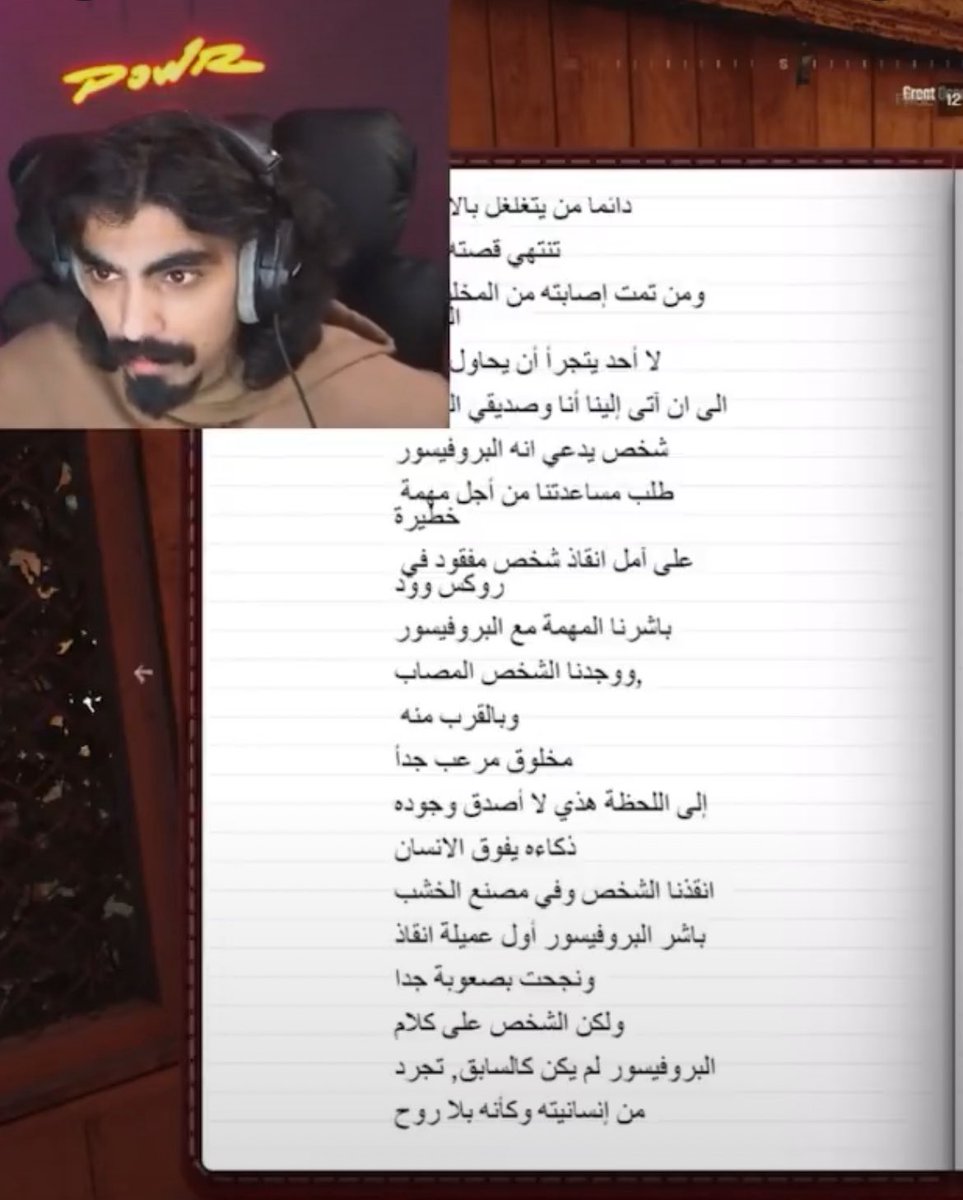 POWR
S
Great
12
دائما من يتغلغل
تنتهي قصته
ومن تمت إصابته من
لا أحد يتجرأ أن يحاول
الى ان آتى إلينا أنا وصديقي
شخص يدعي انه البروفيسور
طلب مساعدتنا من أجل مهمة
خطيرة
على أمل انقاذ شخص مفقود في
روكس وود
باشرنا المهمة مع البروفيسور
,ووجدنا الشخص المصاب
وبالقرب منه
مخلوق مرعب جدأ
إلى اللحظة هذي لا أصدق وجوده
ذكاءه يفوق الانسان
انقذنا الشخص وفي مصنع الخشب
باشر البروفيسور أول عميلة انقاذ
ونجحت بصعوبة جدا
ولكن الشخص على كلام
البروفيسور لم يكن كالسابق, تجرد
من إنسانيته وكأنه بلا روح